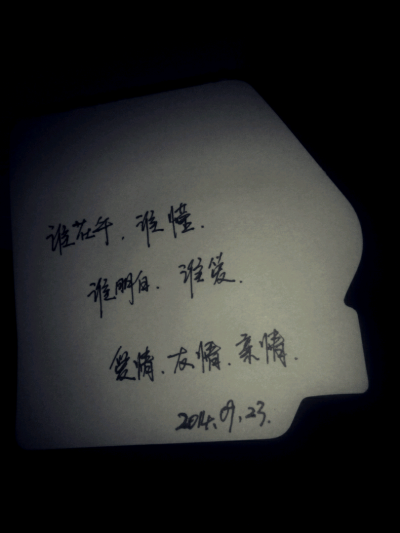 谁在乎.谁懂.
谁明白.谁爱.
爱情.友情.亲情.
2014.09.23.